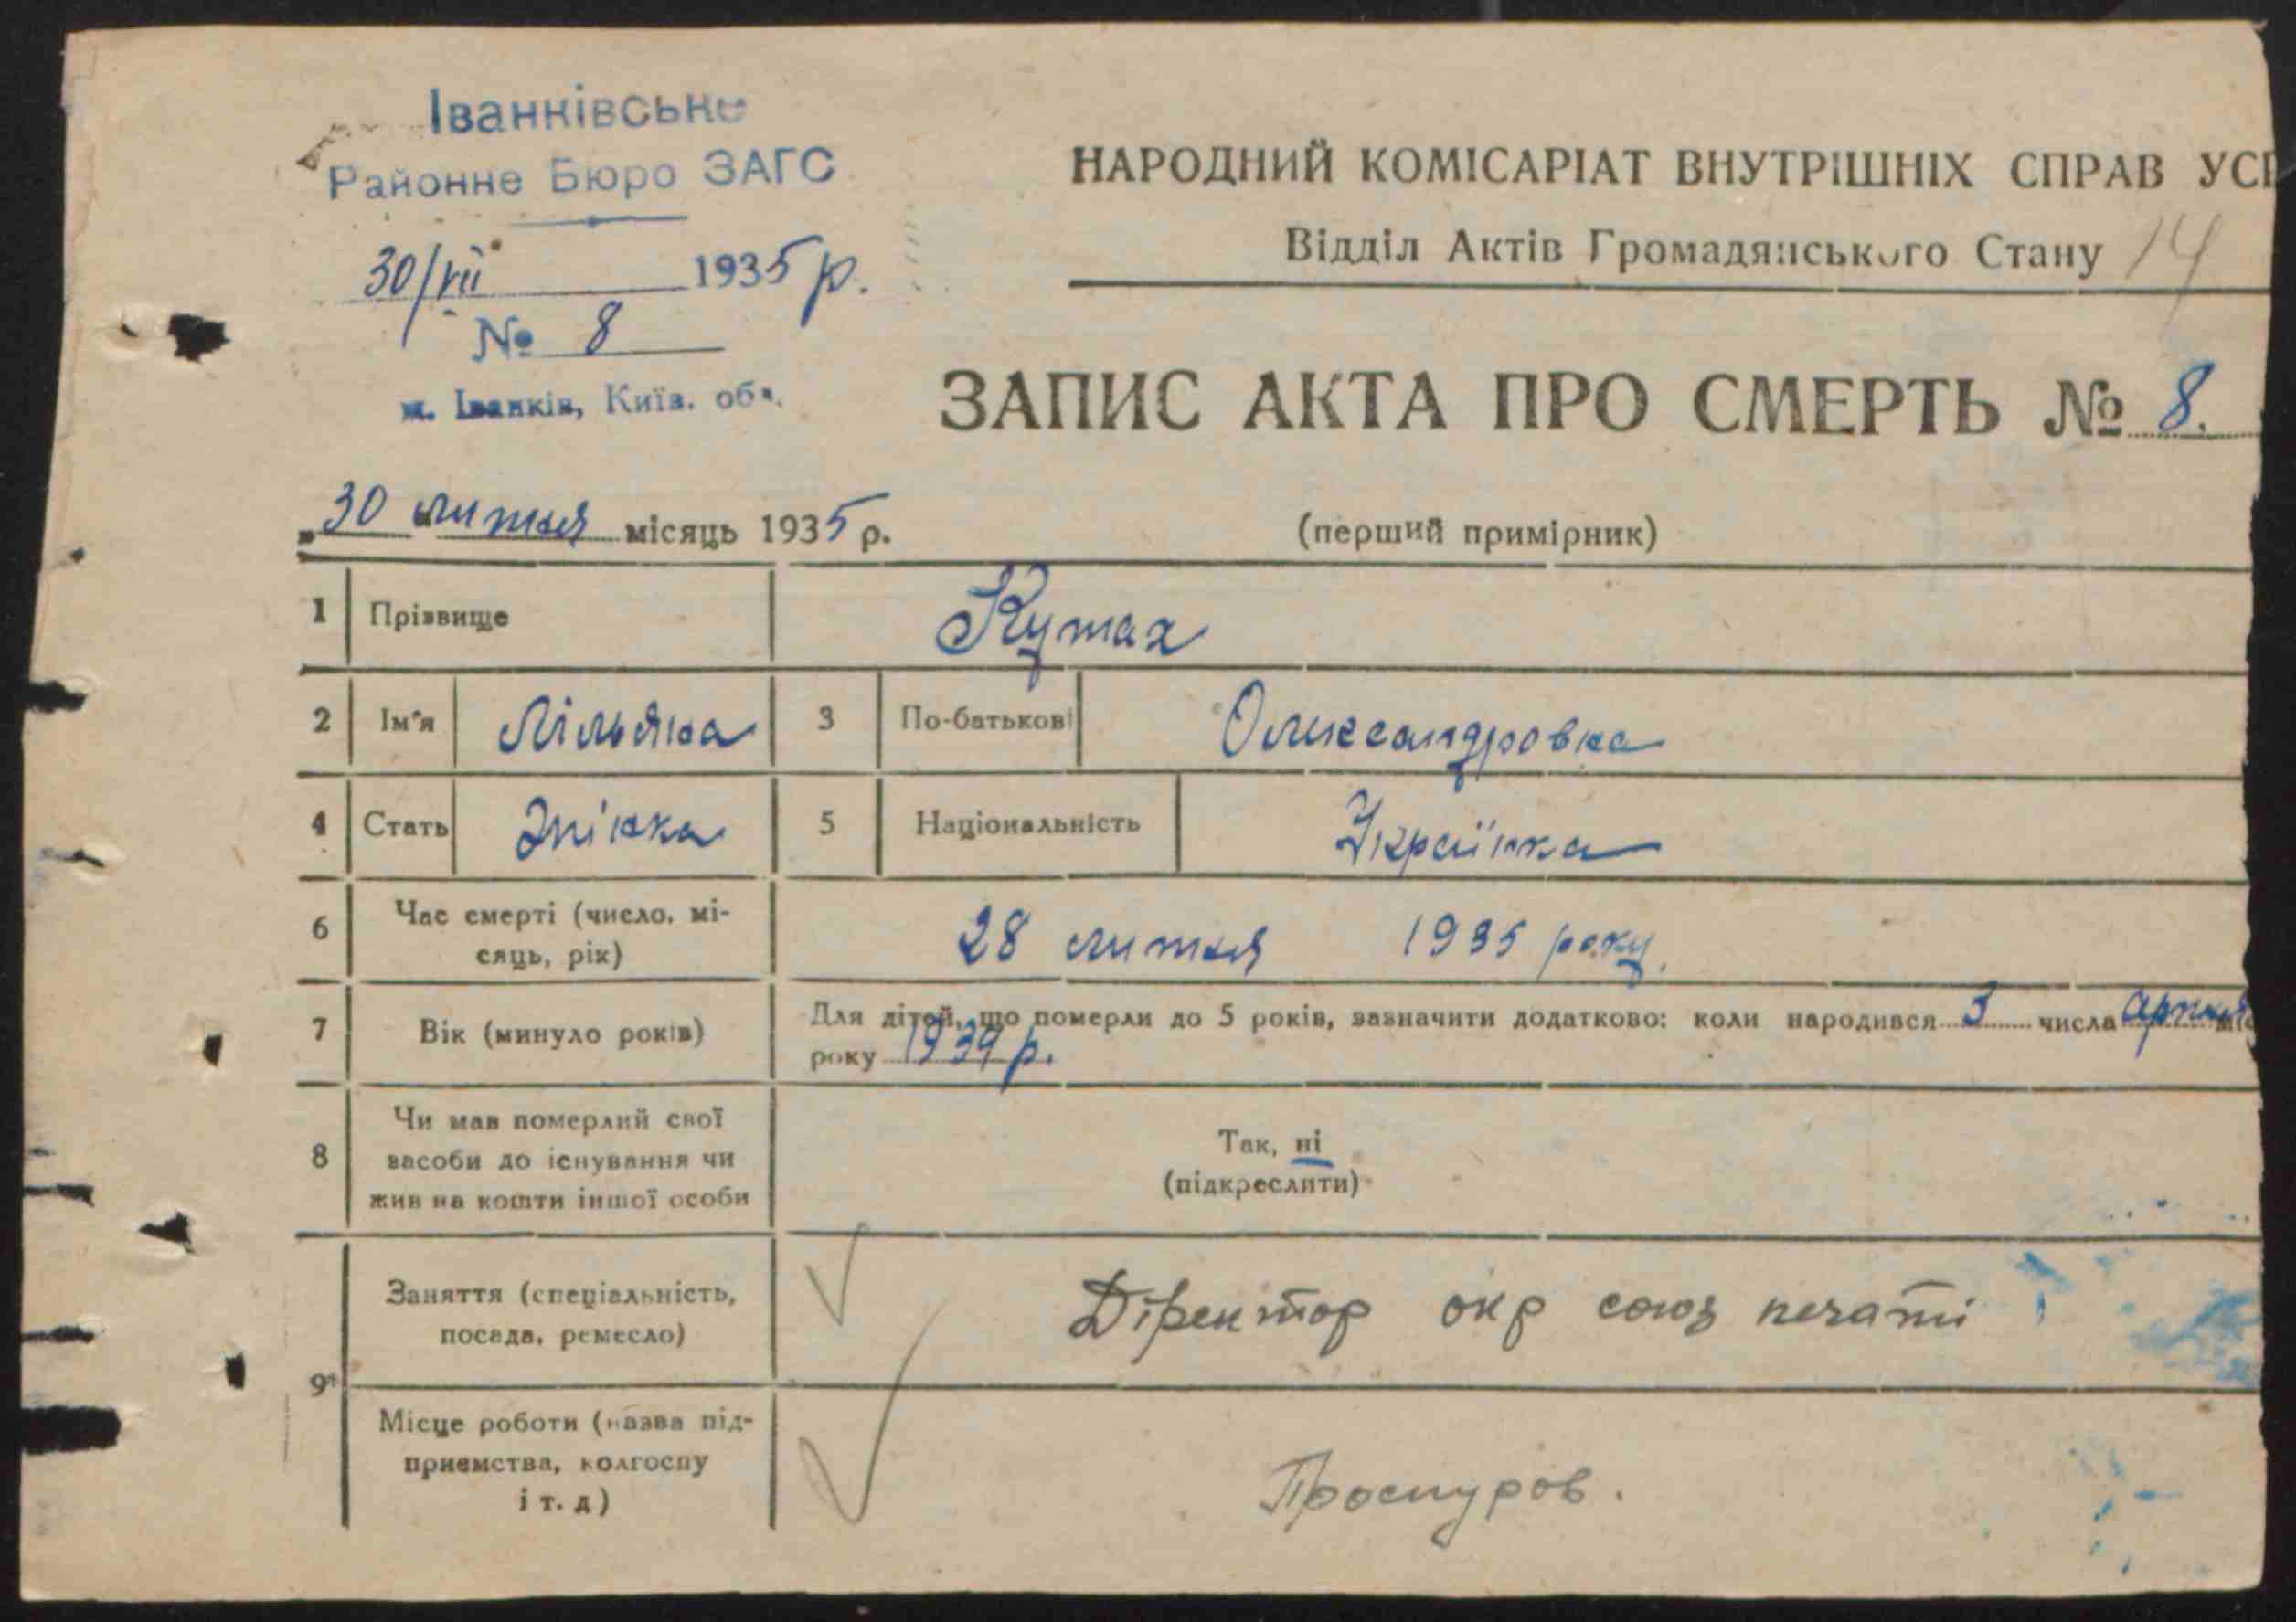 Іванківське
Районне Бюро ЗАГС
30/VII 1935 р.
№ 8
м. Іванків, Київ. обл.
НАРОДНИЙ КОМІСАРІАТ ВНУТРІШНІХ СПРАВ УС
Відділ Актів Громадянського Стану 14
ЗАПИС АКТА ПРО СМЕРТЬ № 8.
„30" липня місяць 1935 р.
(перший примірник)
1 Прізвище Кутах
2 Ім'я Лільяна 3 По-батькові Олександровна
4 Стать Жінка 5 Національність Українка
6 Час смерті (число, мі-
сяць, рік) 28 липня 1935 року.
7 Вік (минуло років) Для дітей, що померли до 5 років, зазначити додатково: коли народився 3 числа
року 1934 р.
8 Чи мав померлий свої
засоби до існування чи
жив на кошти іншої особи
Так, ні
(підкреслити)
9 Заняття (спеціальність,
посада, ремесло) Діректор окр союз печаті
Місце роботи (назва під-
приємства, колгоспу
і т. д) Проскуров.